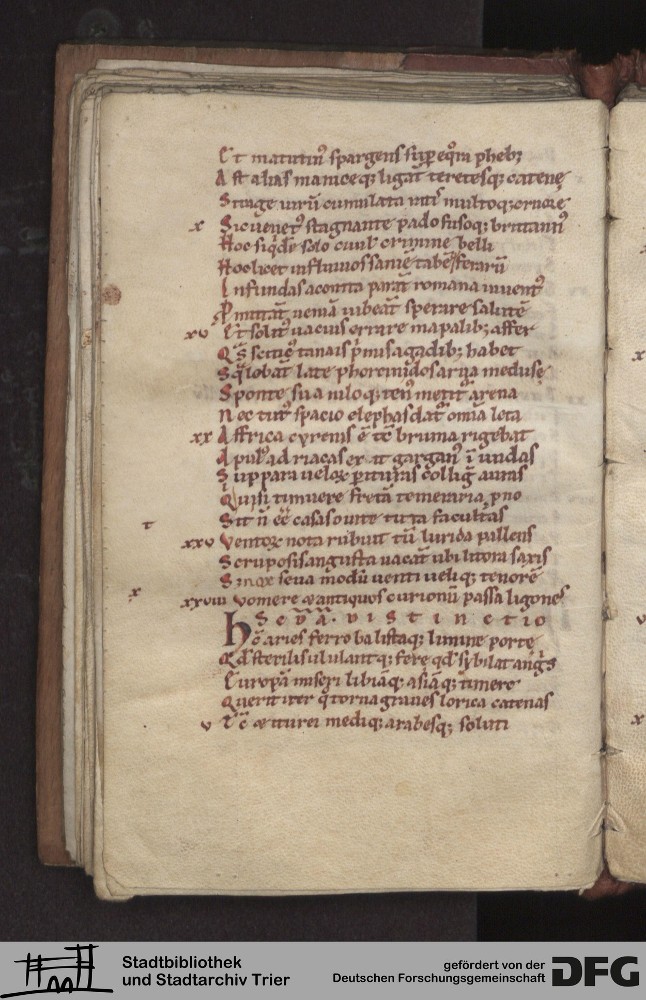 Et matutin᷒ spargens suꝑ eq̃ra phebꝫ
Ast alias manice qꝫ ligãt teretesqꝫ catenę
Struge uirũ cumulata
x Sic uenet᷒ stagnante pado fusoqꝫ britann᷒
Hoc siqͥdẽ solo ciuił crimine belli
Hoc licet in fluuios saniẽ tabẽqꝫ ferarũ
Infundas aconita parãt romana iuuent᷒
sperare salutẽ
xv Et solit᷒ uacuis errare mapalibꝫ affer
tanais agadibꝫ habet
late phorcinidos arua meduse
Sponte sua niloqꝫ arena
Nec tut᷒ spacio elephas dat᷒ omia leta
xx Affrica cyrenis ẽ bruma rigebat
Apul᷒ adriacas exit gargan᷒ ĩ undas
Suppara uelox ꝑituras colligͭ auras
Quisq; timuere fretã temeraria pno
Sit ñ casas o uite tuta facultas
t
xxv Ventoꝝ nota rubuit tũ lurida pallens
Scruposisangusta uacãt ubi litora saxis
Sin ox seua modũ uenti ueliqꝫ tenorẽ
x
xxviii Vomere & antiquos curionũ passa ligones
hec a distinctio
aries ferro balistaqꝫ limine porte
Qd sterilis ululantqꝫ fere qd sybilat ang᷒s
Europã miseri libiãqꝫ asiãqꝫ timere
Querit iter q̃ torna graues lorica catenas
v Tc & iturei mediqꝫ arabesqꝫ soluti
Stadtbibliothek
und Stadtarchiv Trier
gefördert von der
Deutschen Forschungsgemeinschaft
DFG